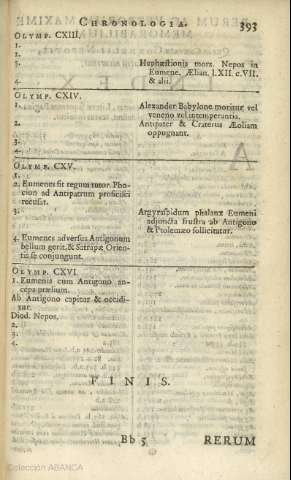 CHRONOLOGIA. 393
OLYMP. CXIII.
1.
2.
3. Hephæstionis mors. Nepos in
Eumene. Ælian. l.XII. c.VII.
4. & alii.
OLYMP. CXIV.
1. Alexander Babylone moritur vel
veneno vel intemperantia.
2. Antipater & Craterus Æoliam
oppugnant.
3.
4.
OLYMP. CXV.
1.
2. Eumenes fit regum tutor. Pho-
cion ad Antipatrum proficisci
recusat.
3. Argyraspidum phalanx Eumeni
adjuncta frustra ab Antigono
& Ptolemæo sollicitatur.
4. Eumenes adversus Antigonum
bellum gerit. & Satrapæ Orien-
tis se conjungunt.
OLYMP. CXVI.
1. Eumenis cum Antigono an-
ceps prælium.
Ab Antigono capitur & occidi-
tur.
Diod. Nepos.
2.
3.
4.
FINIS.
Bb 5 RERUM
Colección ABANCA